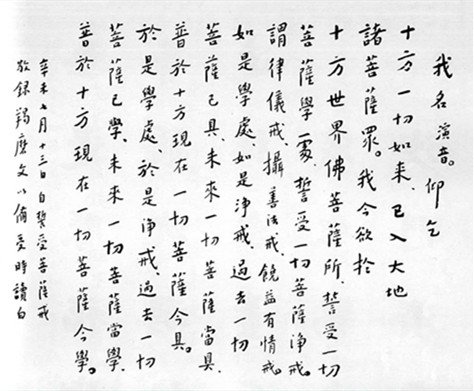 我名演音。仰乞
十方一切如來、已入大地
諸菩薩眾。我今欲於
十方世界佛菩薩所、誓受一切
菩薩學處、誓受一切菩薩淨戒。
謂律儀戒、攝善法戒、饒益有情戒。
如是學處、如是淨戒、過去一切
菩薩已具、未來一切菩薩當具、
普於十方現在一切菩薩今具。
於是學處、於是淨戒、過去一切
菩薩已學、未來一切菩薩當學、
普於十方現在一切菩薩今學。
辛未七月十三日自誓受菩薩戒
敬錄羯磨文以備受時讀白